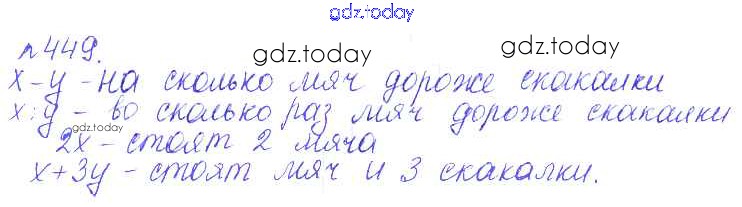 gdz.today
№449.
gdz.today gdz.today
x-y - на сколько мяч дороже скакалки
x:y - во сколько раз мяч дороже скакалки
gdz.today
2x - стоят 2 мяча
x+3y - стоят мяч и 3 скакалки.